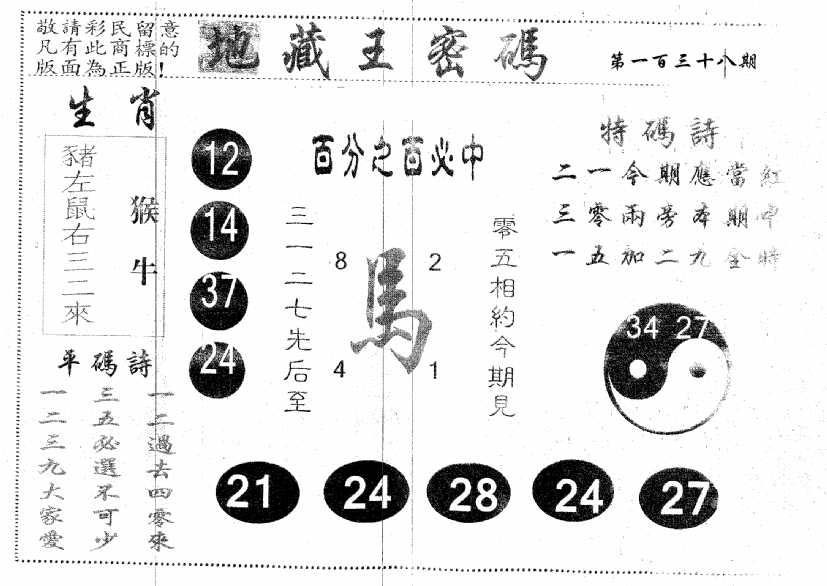 敬請彩民留意
凡有此商標的
版面為正版!
地藏王密碼
第一百三十八期
生肖
豬左鼠右三二來
猴牛
12
14
37
24
百分之百必中
三一二七先后至
8
2
馬
4
1
零五相約今期見
特碼詩
二一今期應當紅
三零兩旁本期中
一五加二九全特
34 27
平碼詩
一二過去四零來
三五必選不可少
一二三九大家愛
21
24
28
24
27